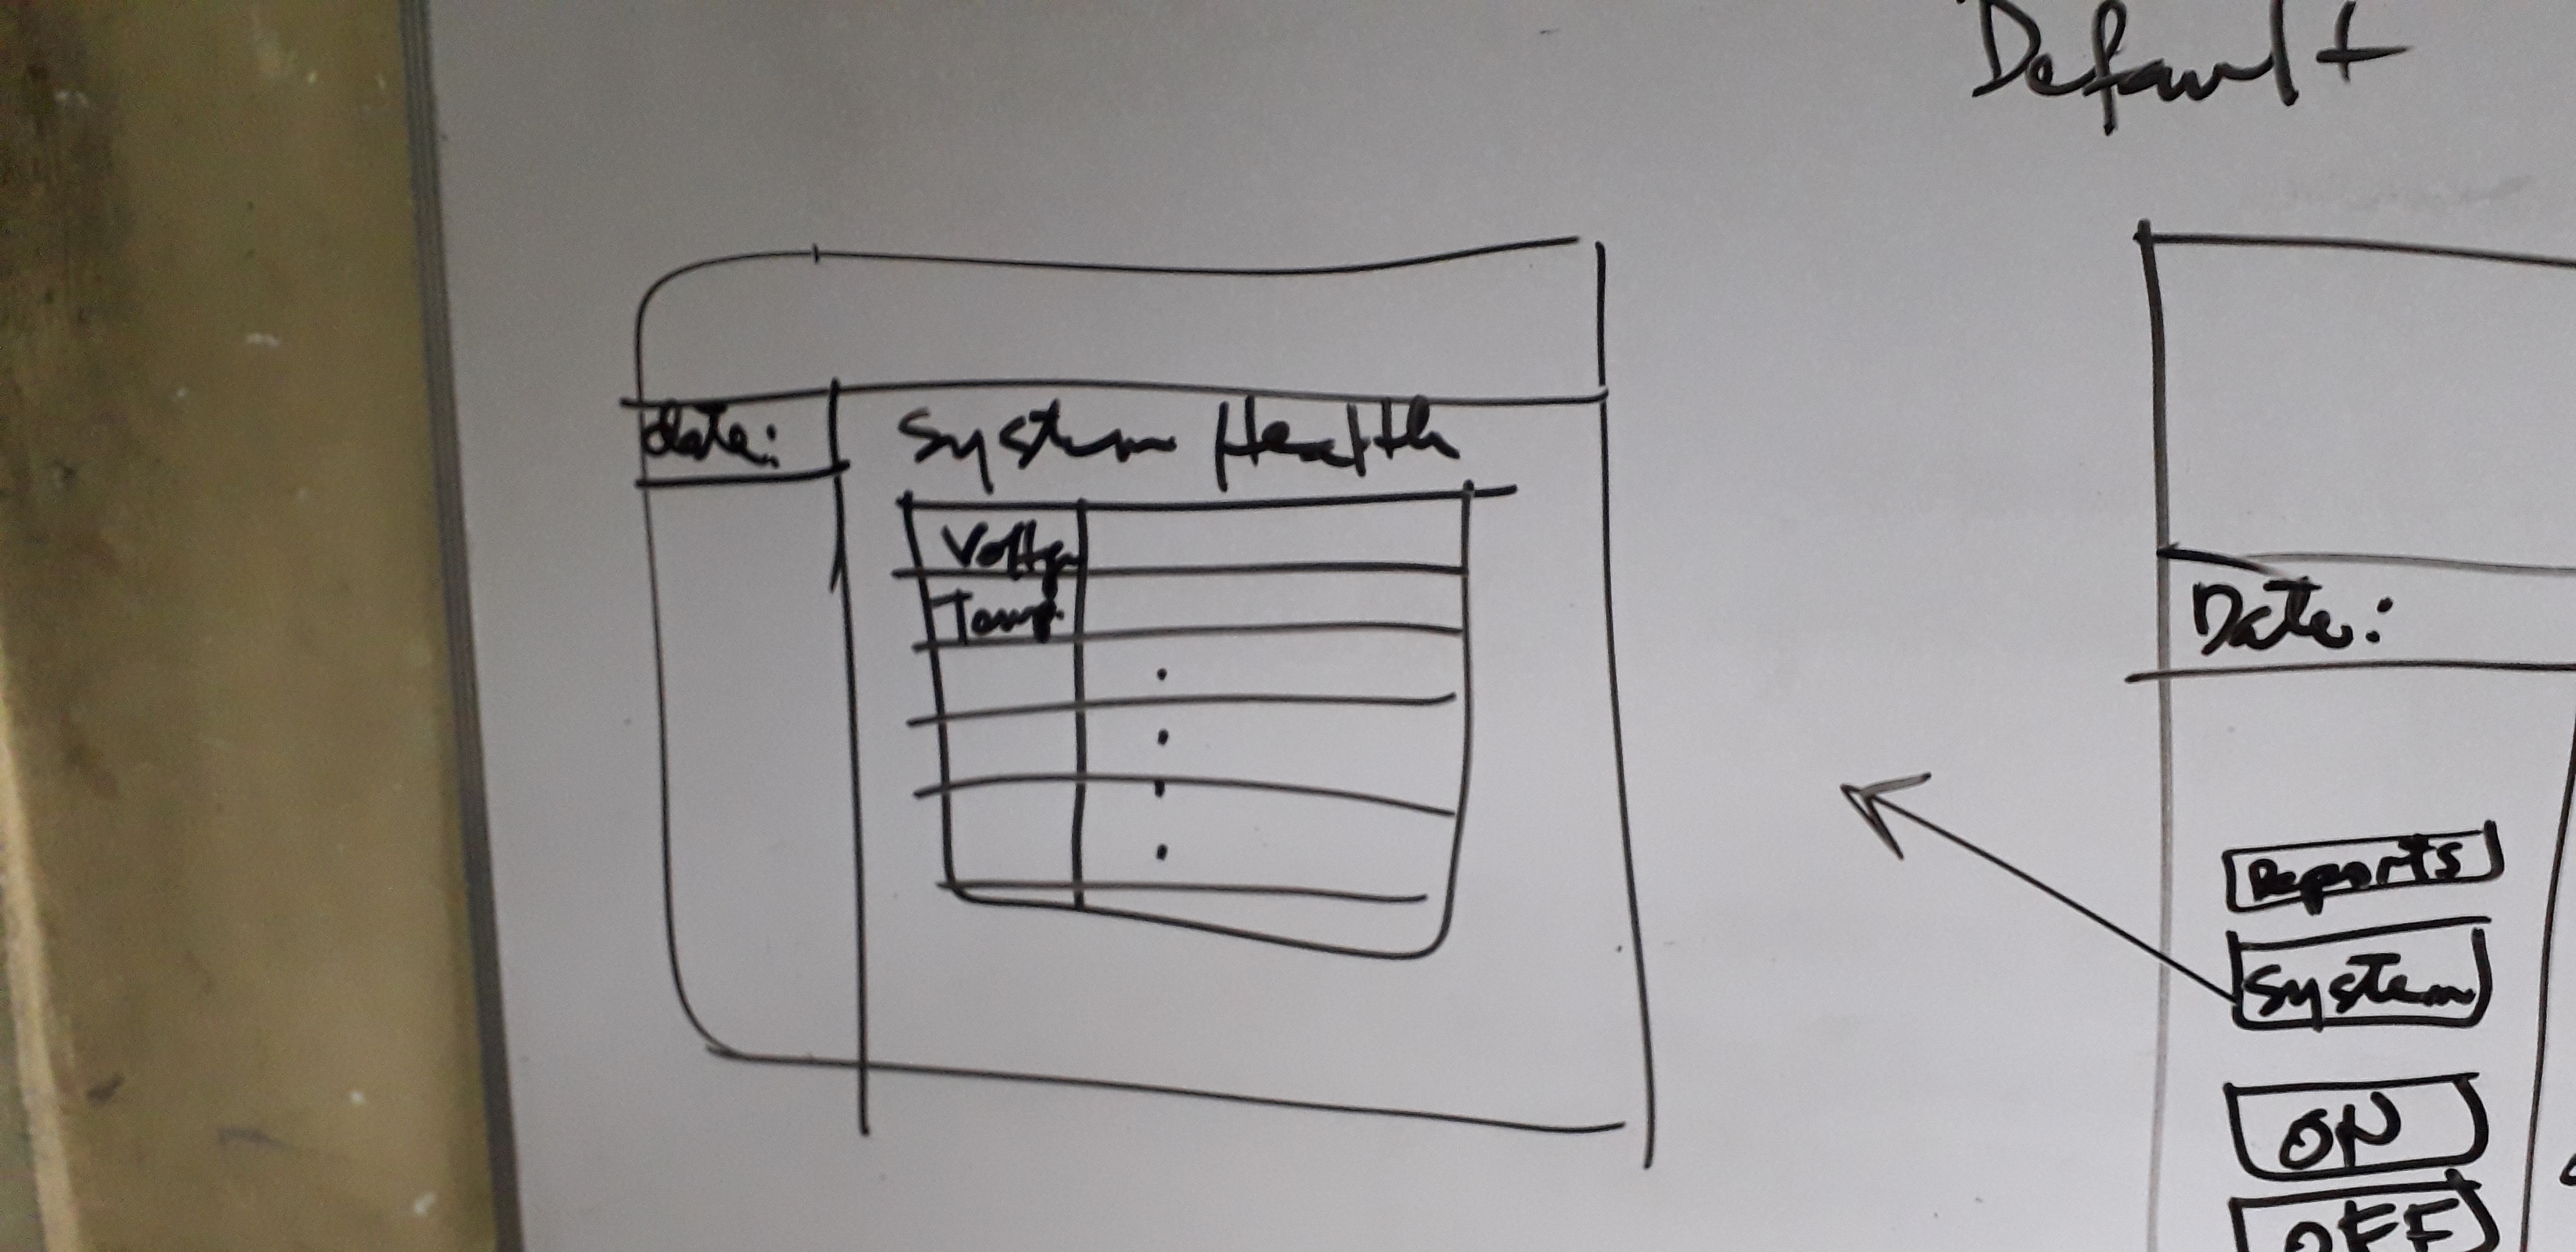 Default
date:
System Health
Voltg
Temp.
Date:
Reports
System
ON
OFF